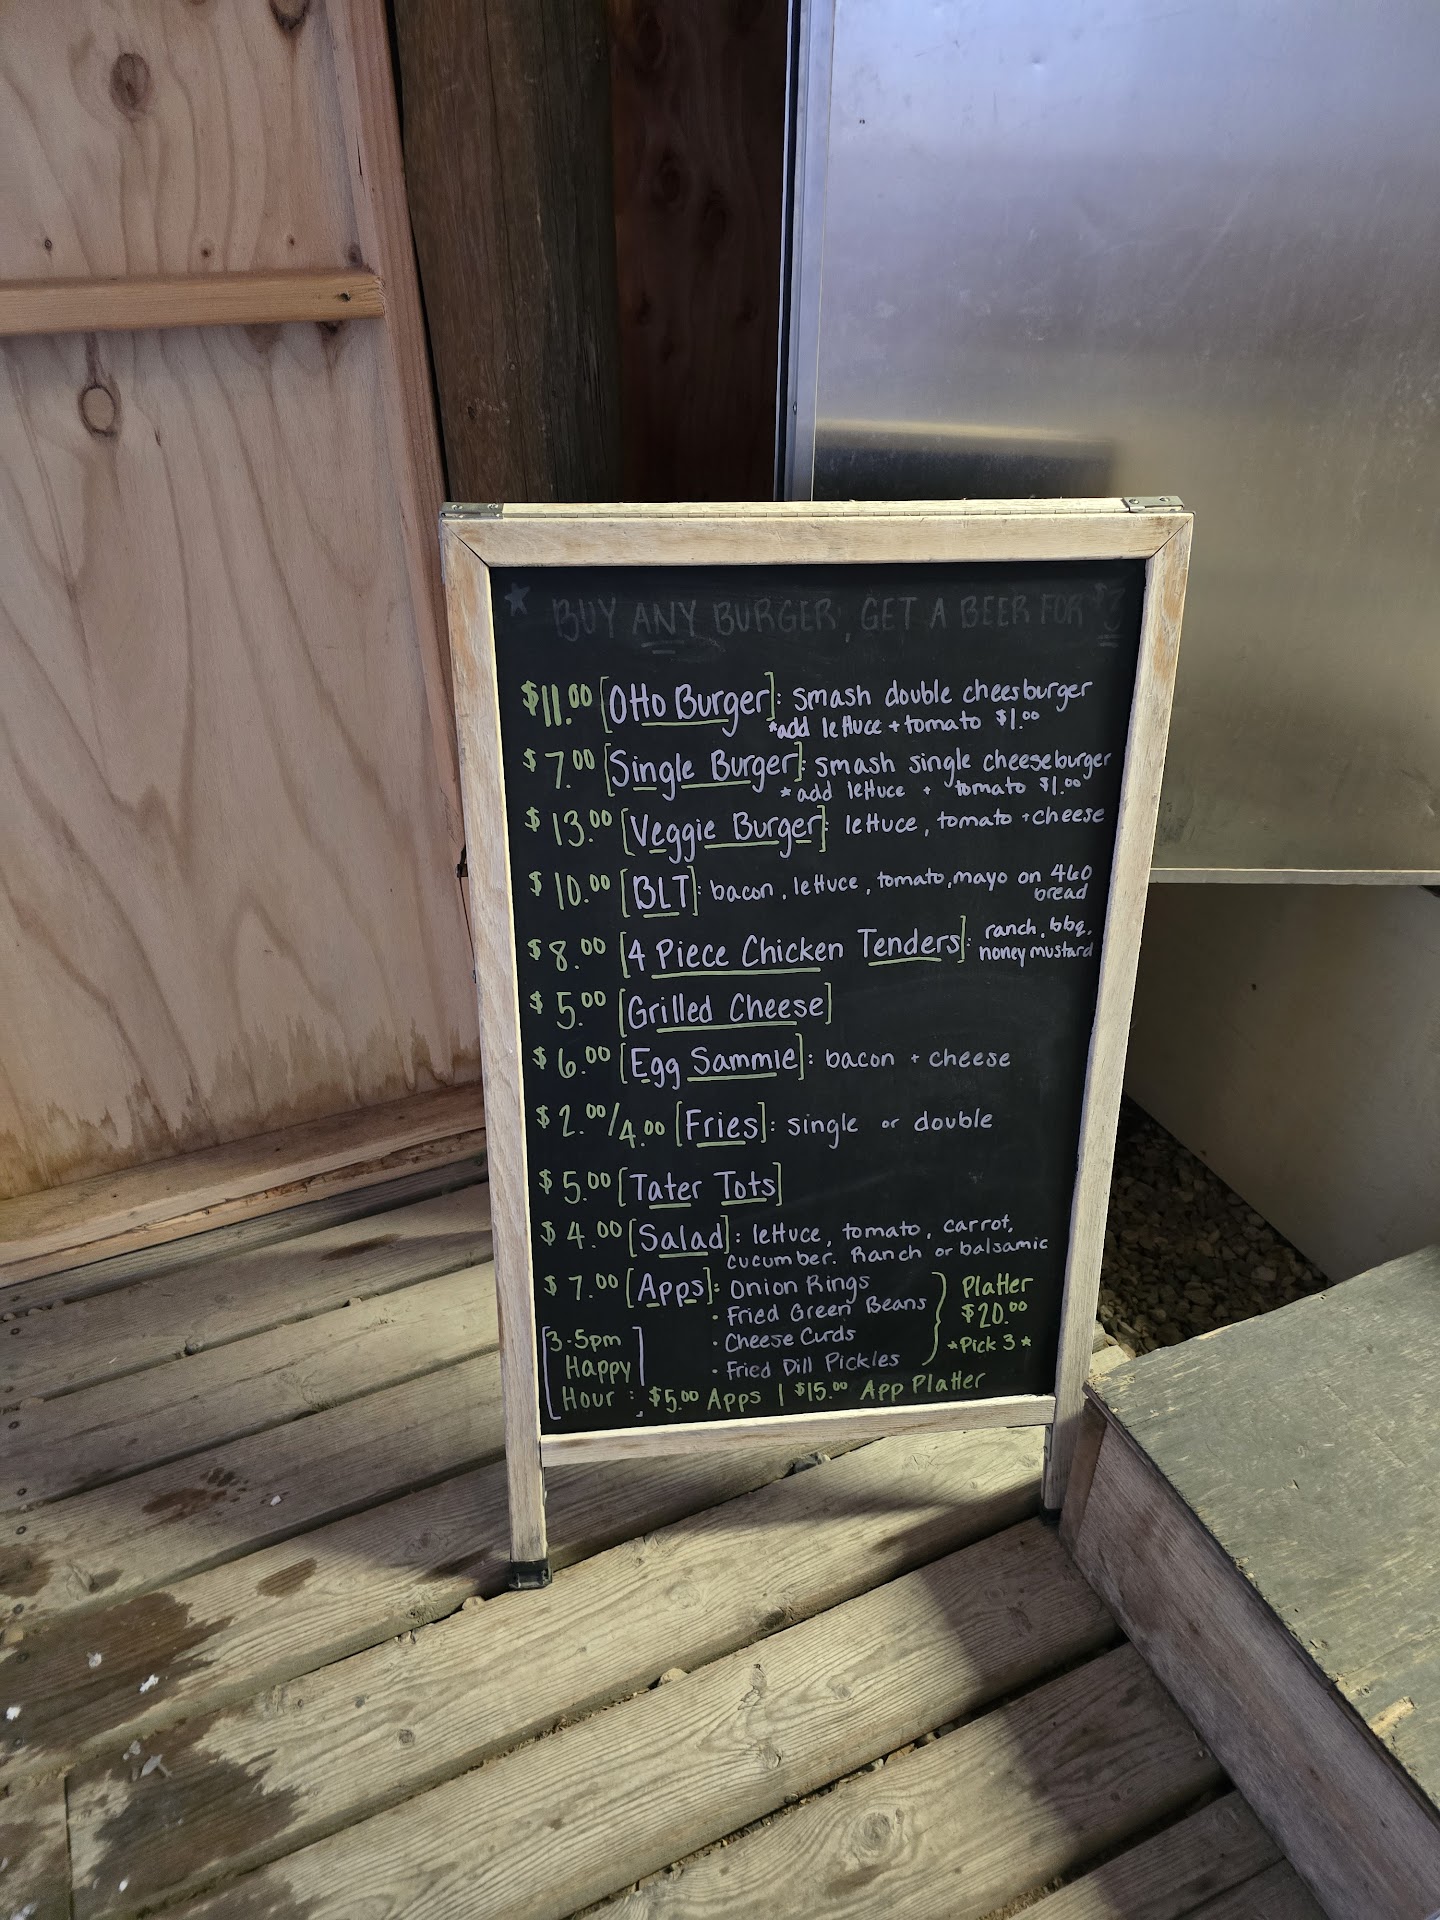 ★ BUY ANY BURGER, GET A BEER FOR $3
$11.00 [Otto Burger]: smash double cheesburger
*add lettuce + tomato $1.00
$7.00 [Single Burger]: smash single cheeseburger
*add lettuce + tomato $1.00
$13.00 [Veggie Burger]: lettuce, tomato + cheese
$10.00 [BLT]: bacon, lettuce, tomato, mayo on 460
bread
$8.00 [4 Piece Chicken Tenders]: ranch, bbq,
honey mustard
$5.00 [Grilled Cheese]
$6.00 [Egg Sammie]: bacon + cheese
$2.00/4.00 [Fries]: single or double
$5.00 [Tater Tots]
$4.00 [Salad]: lettuce, tomato, carrot,
cucumber. Ranch or balsamic
$7.00 [Apps]: Onion Rings
• Fried Green Beans
• Cheese Curds
• Fried Dill Pickles
Platter
$20.00
*Pick 3*
[3-5pm
Happy
Hour]: $5.00 Apps | $15.00 App Platter